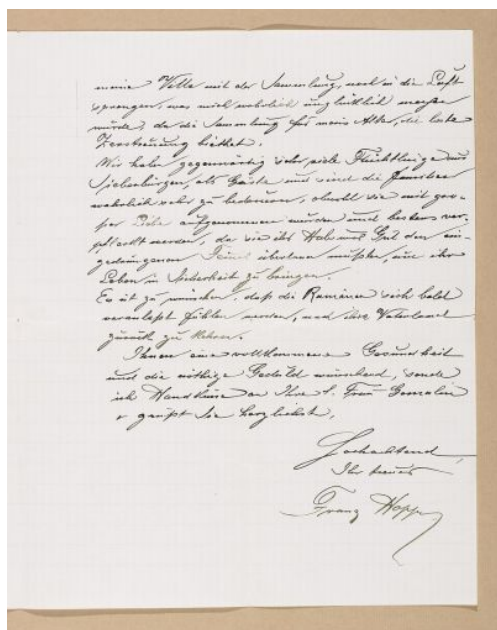 meine Villa mit der Sammlung, noch in die Luft
sprengen, was mich wahrlich unglücklich machen
würde, da die Sammlung für mein Alter, die beste
Zerstreuung biethet.
Wir haben gegenwärtig sehr viele Flüchtlinge aus
Siebenbürgen, als Gäste und sind die Familien
wahrlich sehr zu bedauern, obwohl sie mit gros-
ser Liebe aufgenommen wurden und bestens ver-
pflegt werden, da sie ihr Hab und Gut dem ein-
gedrungenen Feind überlassen mußten, um ihr
Leben in Sicherheit zu bringen.
Es ist zu wünschen, daß die Rumänen sich bald
veranlaßt fühlen werden, nach ihrem Vaterland
zurück zu kehren.
Ihnen eine vollkommene Gesundheit
und die nöthige Geduld wünschend, sende
ich Handküsse an Ihre l. Frau Gemalin
u grüßt Sie herzlichst,
Hochachtend,
Ihr treuer
Franz Hopp